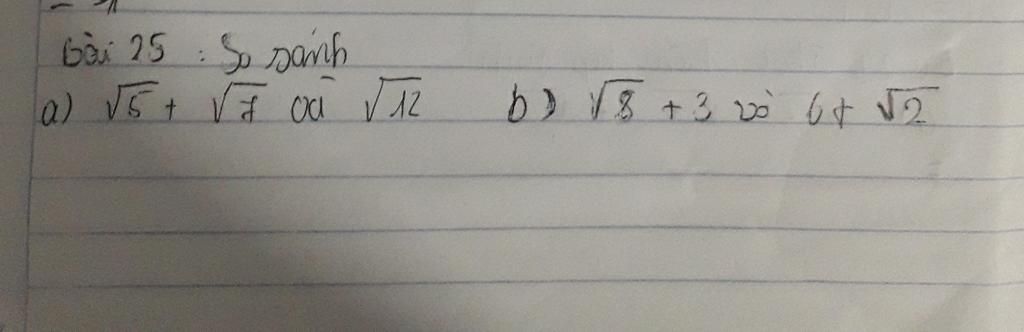 bài 25 : So sánh
a) √5 + √7 và √12 b) √8 + 3 và 6 + √2